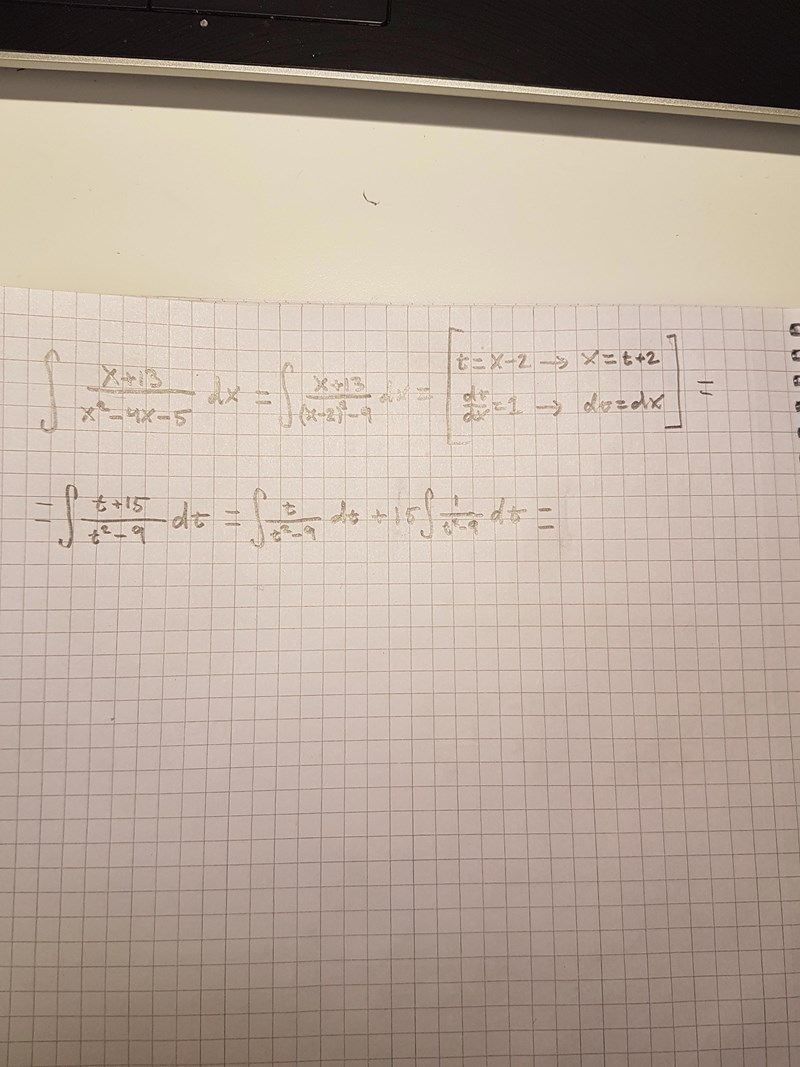 ∫ x+13 / x²-4x-5 dx = ∫ x+13 / (x-2)²-9 dx = [ t=x-2 → x=t+2 dt/dx=1 → dt=dx ] =
= ∫ t+15 / t²-9 dt = ∫ t / t²-9 dt + 15 ∫ 1 / t²-9 dt =